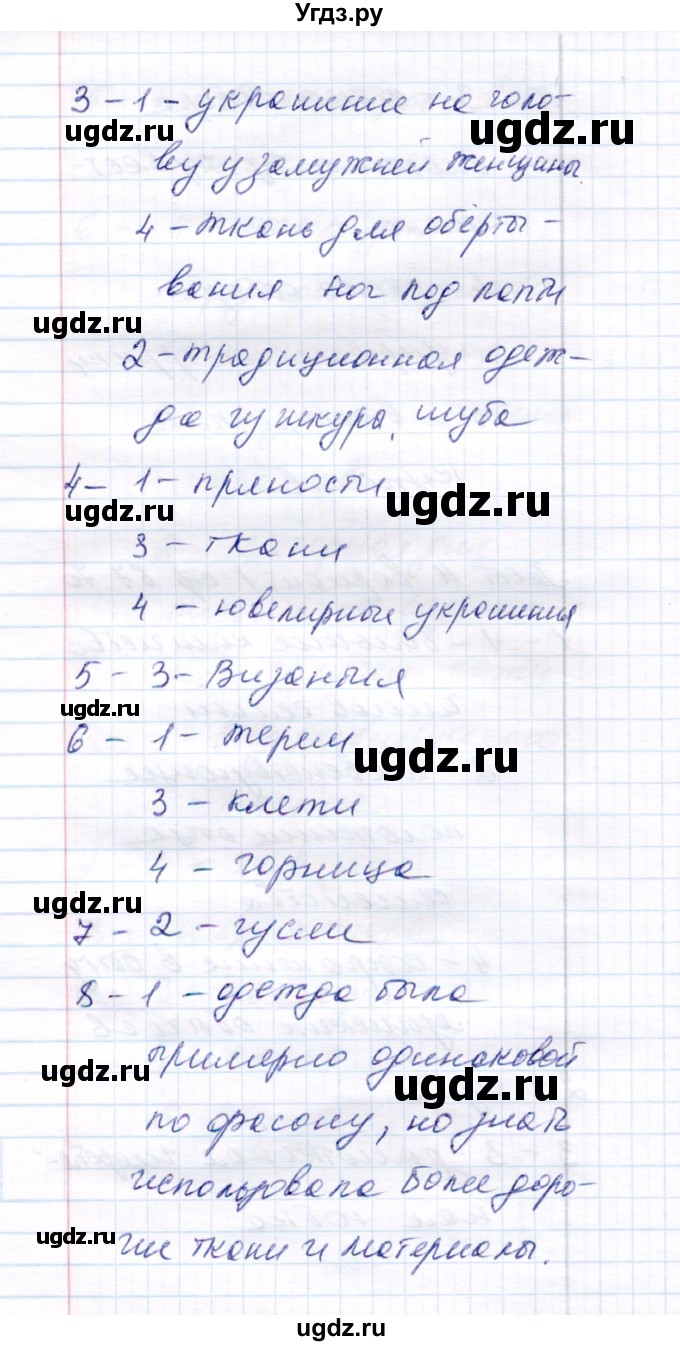 Угдз.ру
3 - 1 - украшение на голо-
ву у замужней женщины.
ugdz.ru ugdz.ru
4 - ткань для обёрты -
вания ног под лапти
ugdz.ru ugdz.ru
2 - традиционная одеж-
да
шуба
4 - 1 - пряности
ugdz.ru ugdz.ru
3 - ткани
4 - ювелирные украшения
5 - 3 - Византия
ugdz.ru
6 - 1 - терем
ugdz.ru
3 - клети
4 - горница
ugdz.ru ugdz.ru
7 - 2 - гусли
8 - 1 - одежда была
примерно одинаковой
ugdz.ru ugdz.ru
по фасону, но знать
использовала более доро-
ugdz.ru ugdz.ru
гие ткани и материалы.
ugdz.ru